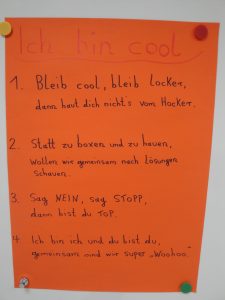 Ich bin cool
1. Bleib cool, bleib locker,
dann haut dich nichts vom Hocker.
2. Statt zu boxen und zu hauen,
wollen wir gemeinsam nach Lösungen
schauen.
3. Sag NEIN, sag STOPP,
dann bist du TOP.
4. Ich bin ich und du bist du,
gemeinsam sind wir super „Woohoo".